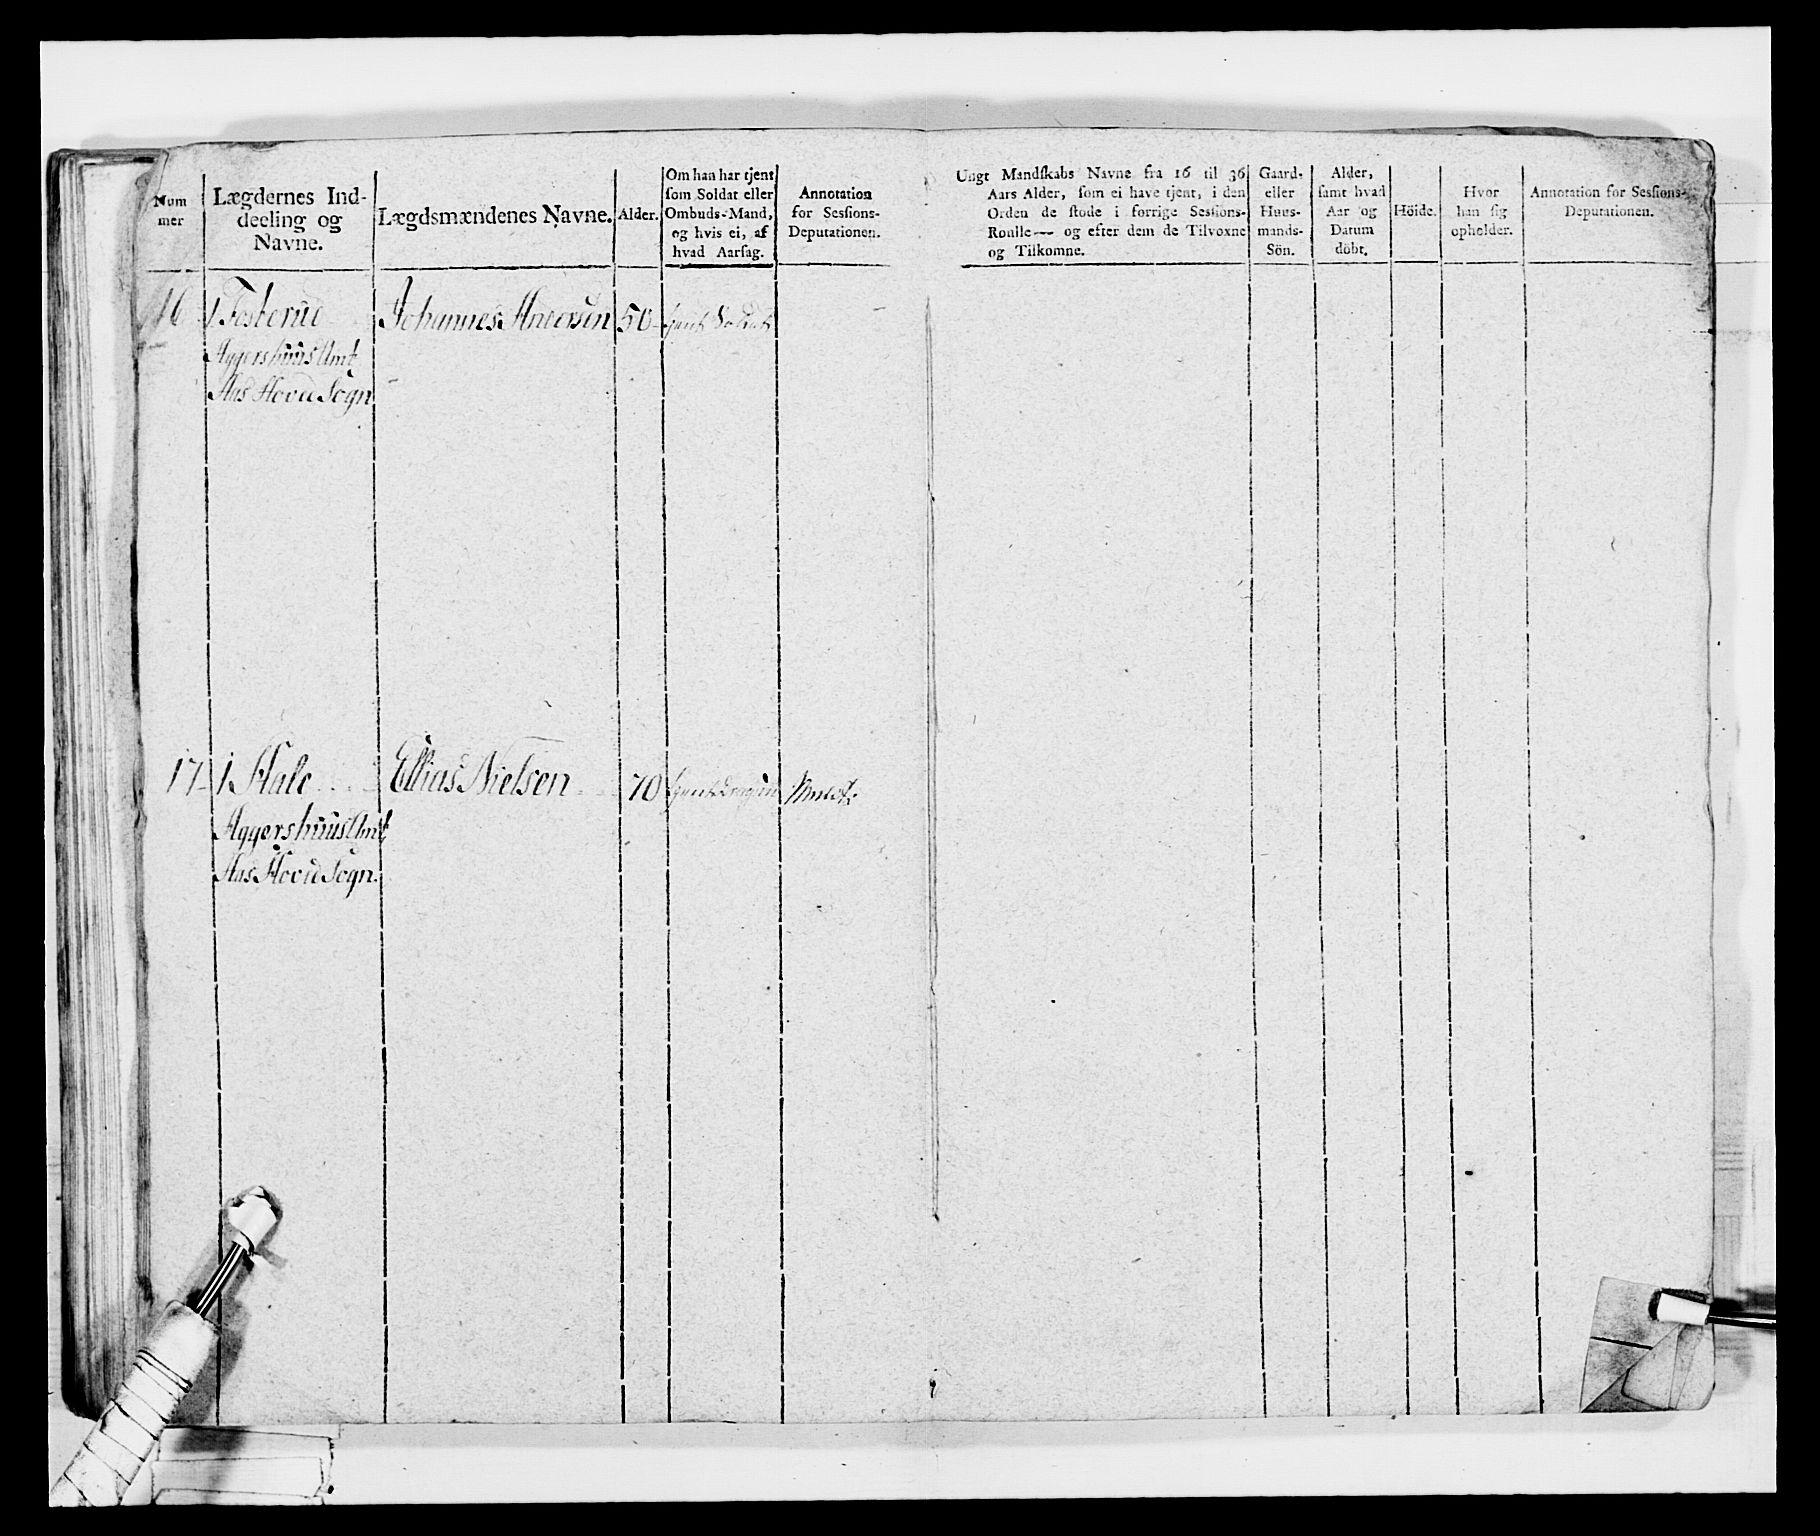 Num
mer
Lægdernes Ind-
deeling og
Navne.
Lægdsmændenes Navne.
Alder.
Om han har tjent
som Soldat eller
Ombuds-Mand,
og hvis ei, af
hvad Aarsag.
Annotation
for Sessions-
Deputationen.
Ungt Mandskabs Navne fra 16 til 36
Aars Alder, som ei have tjent, i den
Orden de stode i forrige Sessions-
Roulle — og efter dem de Tilvoxne
og Tilkomne.
Gaard-
eller
Huus-
mands-
Sön.
Alder,
samt hvad
Aar og
Datum
döbt.
Höide.
Hvor
han sig
opholder.
Annotation for Sessions-
Deputationen.
16 1 Fosterud Johannes Andersen 50 tjent Soldat
Aggershuus Amt
Aas Hoved Sogn
17 1 Hale Ellias Nielsen 70 tjent Dragun
Aggershuus Amt
Aas Hoved Sogn.